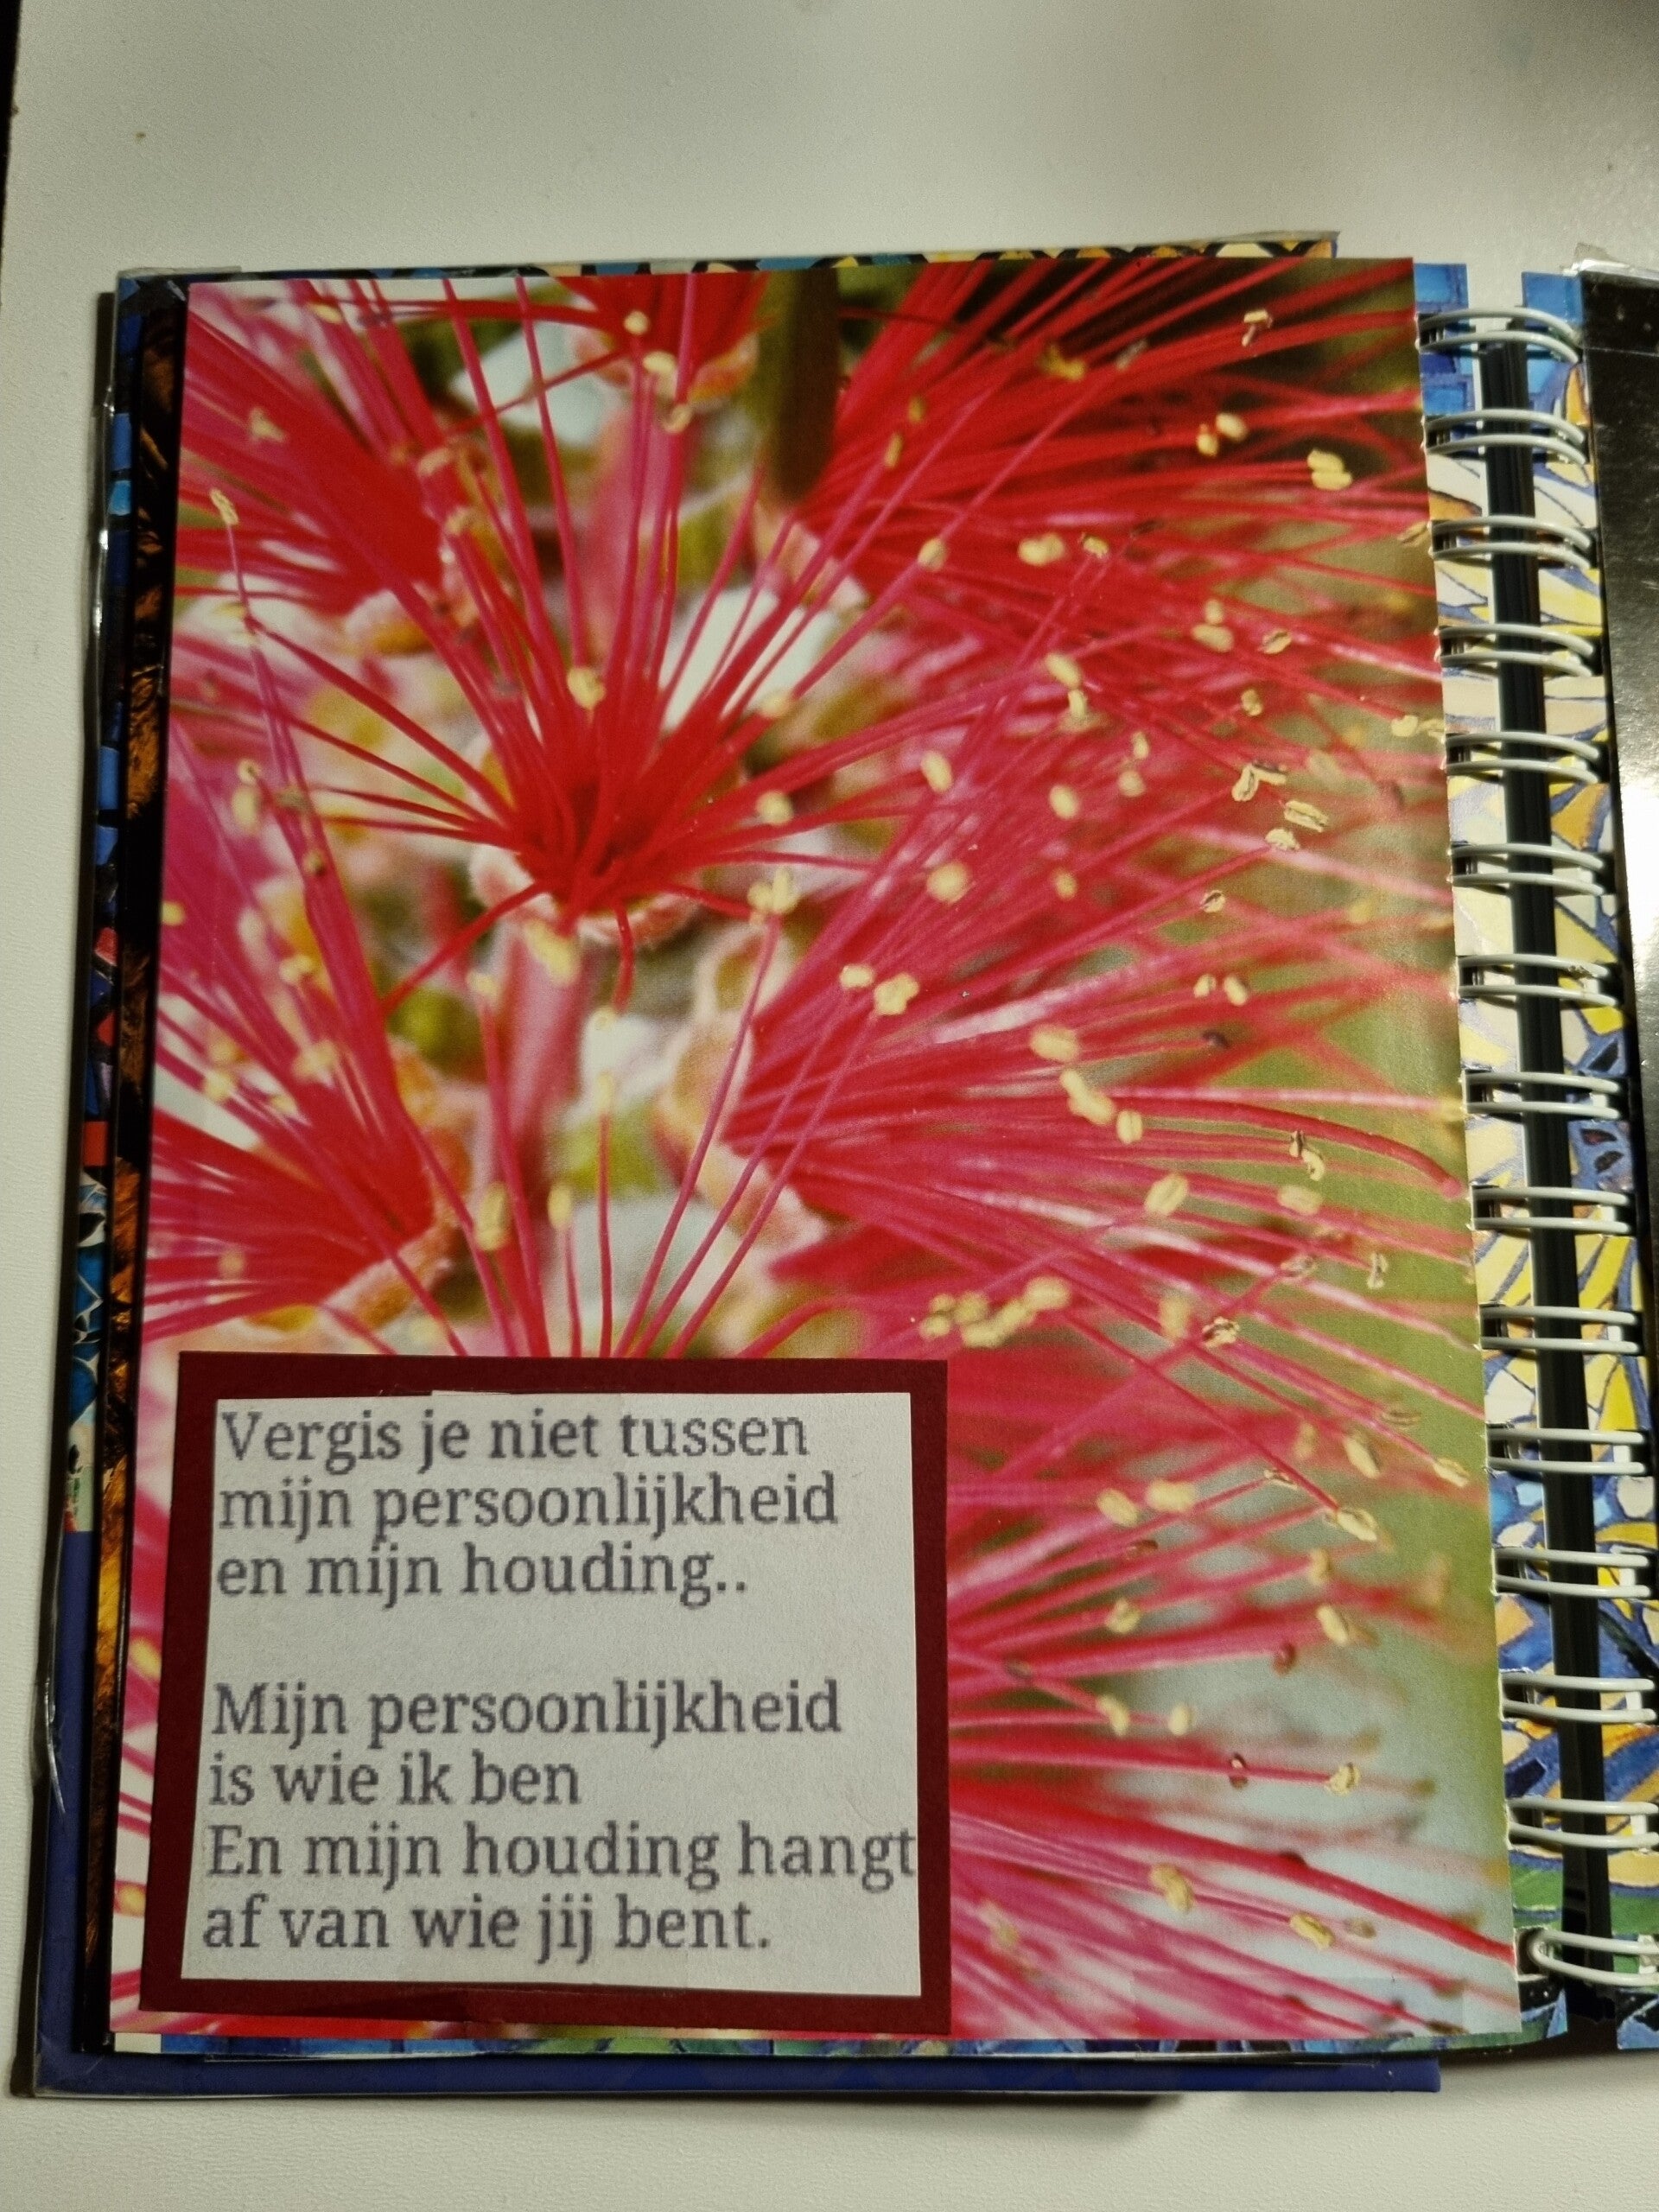 Vergis je niet tussen
mijn persoonlijkheid
en mijn houding..
Mijn persoonlijkheid
is wie ik ben
En mijn houding hangt
af van wie jij bent.